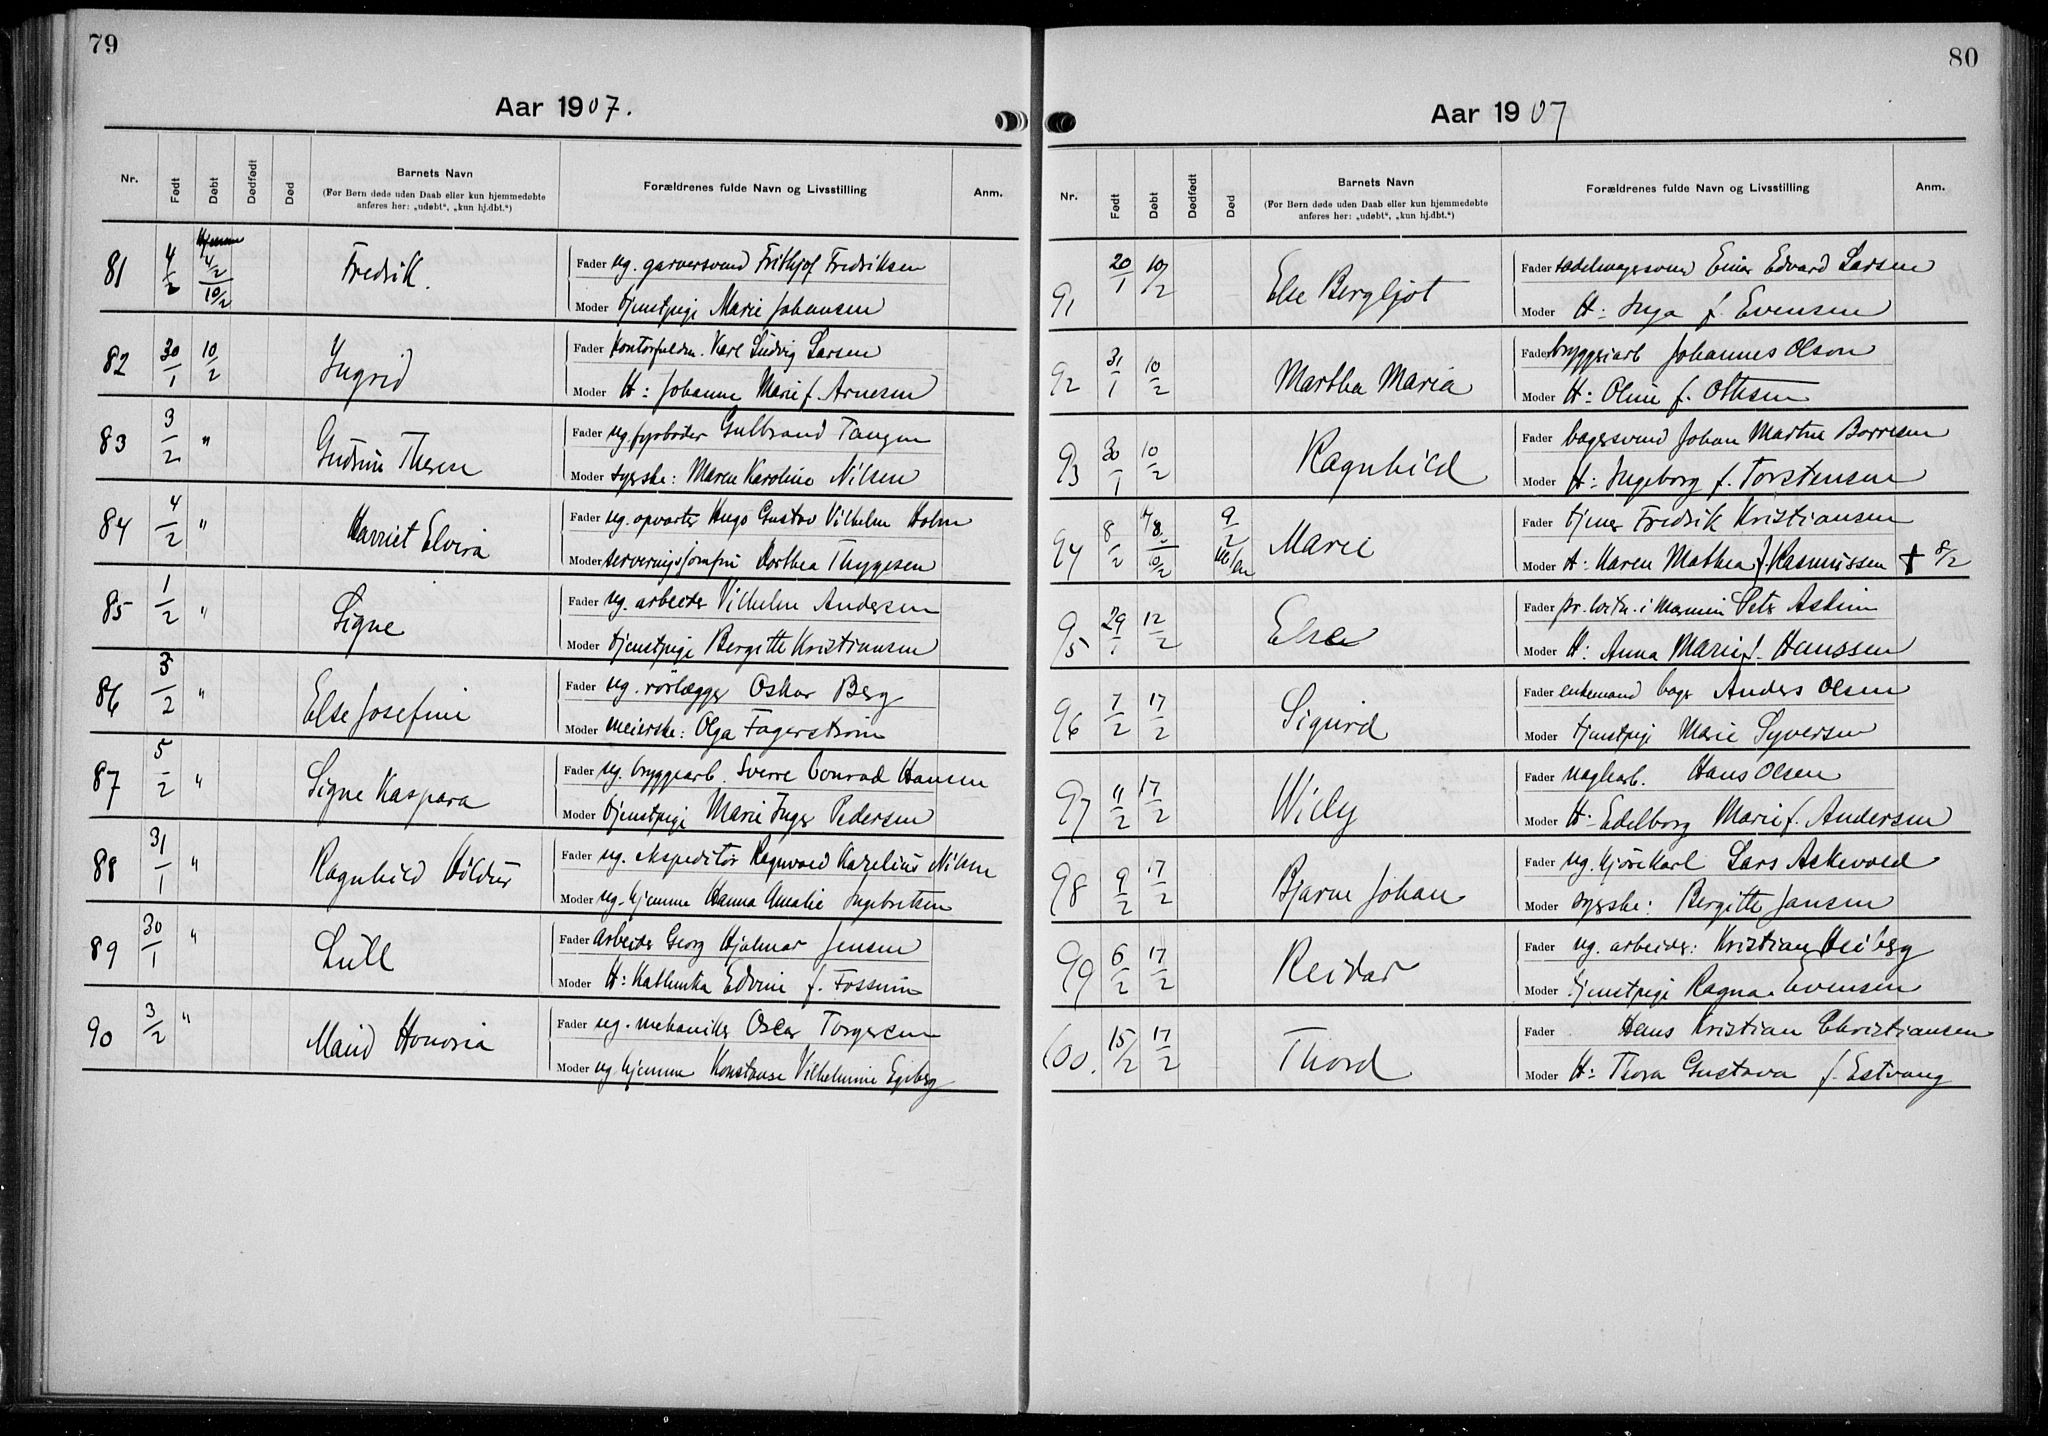 79
Aar 1907.
Nr. Født Døbt Dødfødt Død Barnets Navn Forældrenes fulde Navn og Livsstilling Anm.
(For Børn døde uden Daab eller kun hjemmedøbte
anføres her: „udøbt“, „kun hj.dbt.“)
81 4/2 Hjemme 4/2 10/2 Fredrik. Fader ug. garversvend Frithjof Fredriksen
Moder tjenstpige Marie Johansen
82 30/1 10/2 Ingrid Fader Kontorfuldm. Karl Ludvig Larsen
Moder H: Johanne Marie f. Arnesen
83 3/2 " Gudrun Therese Fader ug fyrbøder Gulbrand Tangen
Moder syerske: Maren Karoline Nilsen
84 4/2 " Harriet Elvira Fader ug. opvarter Hugo Gustav Vilhelm Holm
Moder serveringsjomfru Dorthea Thygesen
85 1/2 " Signe Fader ug. arbeider Vilhelm Andersen
Moder tjenstpige Bergitte Kristiansen
86 3/2 " Else Josefine Fader ug. rørlægger Oskar Berg
Moder meierske: Olga Fagerstrøm
87 5/2 " Signe Kaspara Fader ug. bryggearb. Sverre Conrad Hansen
Moder tjenstpige Marie Inger Pedersen
88 31/1 " Ragnhild Høldur Fader ug. ekspeditør Ragnvald Karelius Nilsen
Moder ug. hjemme Hanna Amalie Ingebretsen
89 30/1 " Lull Fader Arbeider Georg Hjalmar Jensen
Moder H: Kathinka Edvine f. Fossum
90 3/2 " Maud Honoria Fader ug. mekaniker Oscar Torgersen
Moder ug hjemme Konstanse Vilhelmine Egeberg
80
Aar 1907
Nr. Født Døbt Dødfødt Død Barnets Navn Forældrenes fulde Navn og Livsstilling Anm.
(For Børn døde uden Daab eller kun hjemmedøbte
anføres her: „udøbt“, „kun hj.dbt.“)
91 20/1 10/2 Else Bergljot Fader sadelmagersvend Einar Edvard Larsen
Moder H: Inga f. Evensen
92 31/1 10/2 Martha Maria Fader bryggeriarb Johannes Olson
Moder H: Oline f. Othsen
93 30/1 10/2 Ragnhild Fader bagersvend Johan Martin Borresen
Moder H: Ingeborg f. Torstensen
94 8/2 10/2 9/2 Marie Fader tjener Fredrik Kristiansen
Moder H: Karen Mathea f. Rasmussen + 8/2
95 29/1 12/2 Else Fader pr. løitn. i Marinen Peter Askim
Moder H: Anna Marie f. Hanssen
96 7/2 17/2 Sigurd Fader enkemand bager Anders Olsen
Moder tjenstpige Marie Syversen
97 11/2 17/2 Willy Fader uaglarb. Hans Olsen
Moder H: Edelborg Marie f. Andersen
98 9/2 17/2 Bjarne Johan Fader ug. kjørekarl Lars Askevold
Moder syerske: Bergitte Jansen
99 6/2 17/2 Reidar Fader ug. arbeider: Kristian Heiberg
Moder tjenstpige Ragna Evensen
100. 15/2 17/2 Thord Fader Hans Kristian Christiansen
Moder H: Thora Gustava f. Estvang